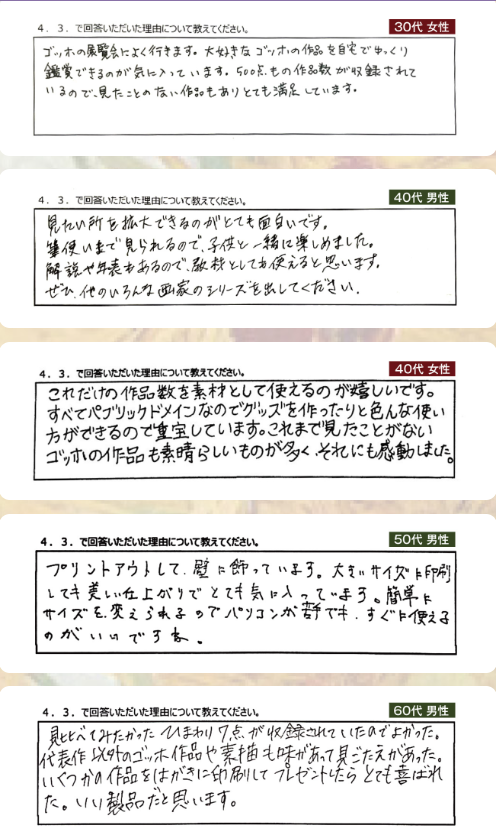 4．3．で回答いただいた理由について教えてください。
30代 女性
ゴッホの展覧会によく行きます。大好きなゴッホの作品を自宅でゆっくり
鑑賞できるのが気に入っています。500点もの作品数が収録されて
いるので、見たことのない作品もありとても満足しています。
4．3．で回答いただいた理由について教えてください。
40代 男性
見たい所を拡大できるのがとても面白いです。
筆使いまで見られるので、子供と一緒に楽しめました。
解説や年表もあるので、教材としても使えると思います。
ぜひ、他のいろんな画家のシリーズを出してください.
4．3．で回答いただいた理由について教えてください。
40代 女性
これだけの作品数を素材として使えるのが嬉しいです。
すべてパブリックドメインなのでグッズを作ったりと色んな使い
方ができるので重宝しています。これまで見たことがない
ゴッホの作品も素晴らしいものが多く、それにも感動しました。
4．3．で回答いただいた理由について教えてください。
50代 男性
プリントアウトして、壁に飾っています。大きいサイズに印刷
しても美しい仕上がりでとても気に入っています。簡単に
サイズを変えられるのでパソコンが苦手でも、すぐに使える
のがいいですね。
4．3．で回答いただいた理由について教えてください。
60代 男性
見比べてみたかったひまわり7点が収録されていたのでよかった。
代表作以外のゴッホ作品や素描も味があって見ごたえがあった。
いくつかの作品をはがきに印刷してプレゼントしたらとても喜ばれ
た。いい製品だと思います。